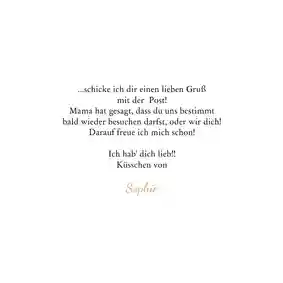 ...schicke ich dir einen lieben Gruß
mit der Post!
Mama hat gesagt, dass du uns bestimmt
bald wieder besuchen darfst, oder wir dich!
Darauf freue ich mich schon!
Ich hab' dich lieb!!
Küsschen von
Sophie